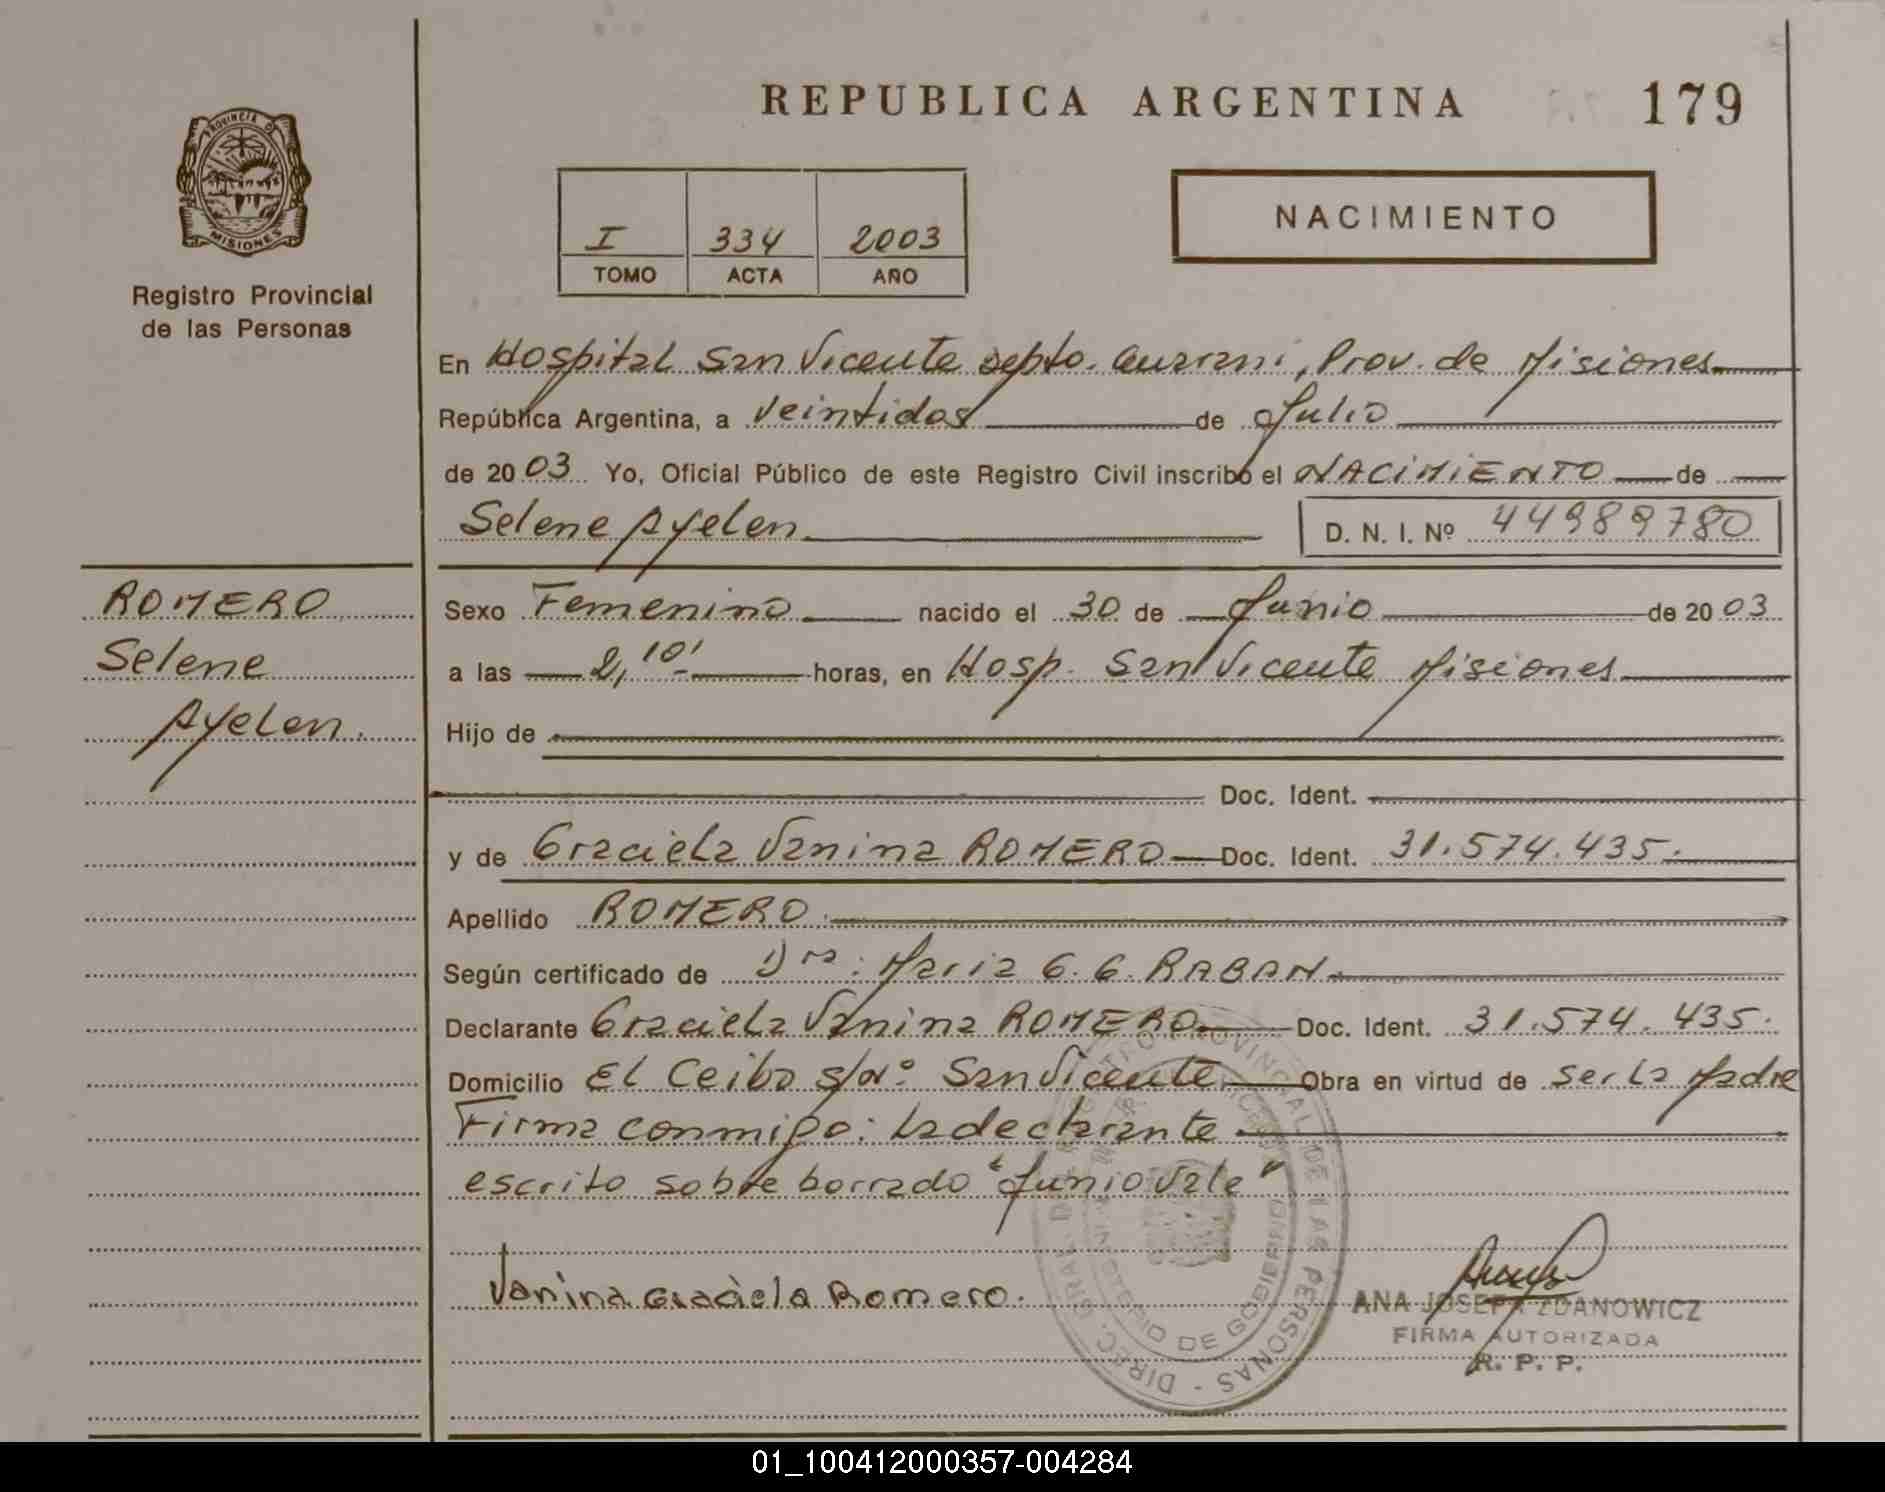 REPUBLICA ARGENTINA 179
PROVINCIA DE
MISIONES
Registro Provincial
de las Personas
NACIMIENTO
I 334 2003
TOMO ACTA AÑO
En Hospital San Vicente Depto. Guarani, Prov. de Misiones
República Argentina, a Veintidos de Julio
de 2003 Yo, Oficial Público de este Registro Civil inscribo el NACIMIENTO de
Selene Ayelen D. N. I. Nº 44989780
ROMERO
Selene
Ayelen.
Sexo Femenino nacido el 30 de Junio de 2003
a las 2,10' horas, en Hosp. San Vicente Misiones
Hijo de
Doc. Ident.
y de Graciela Vanina ROMERO Doc. Ident. 31.574.435.
Apellido ROMERO
Según certificado de Dra: Maria G. G. RABAN
Declarante Graciela Vanina ROMERO Doc. Ident. 31.574.435.
Domicilio El Ceibo s/nº San Vicente Obra en virtud de ser la Madre
Firma conmigo: la declarante
escrito sobre borrado "Junio Vale"
Vanina Graciela Romero.
DIREC. GRAL. DE REGISTRO PROVINCIAL DE LAS PERSONAS
MINISTERIO DE GOBIERNO
ANA JOSEFA ZDANOWICZ
FIRMA AUTORIZADA
R. P. P.
01_100412000357-004284